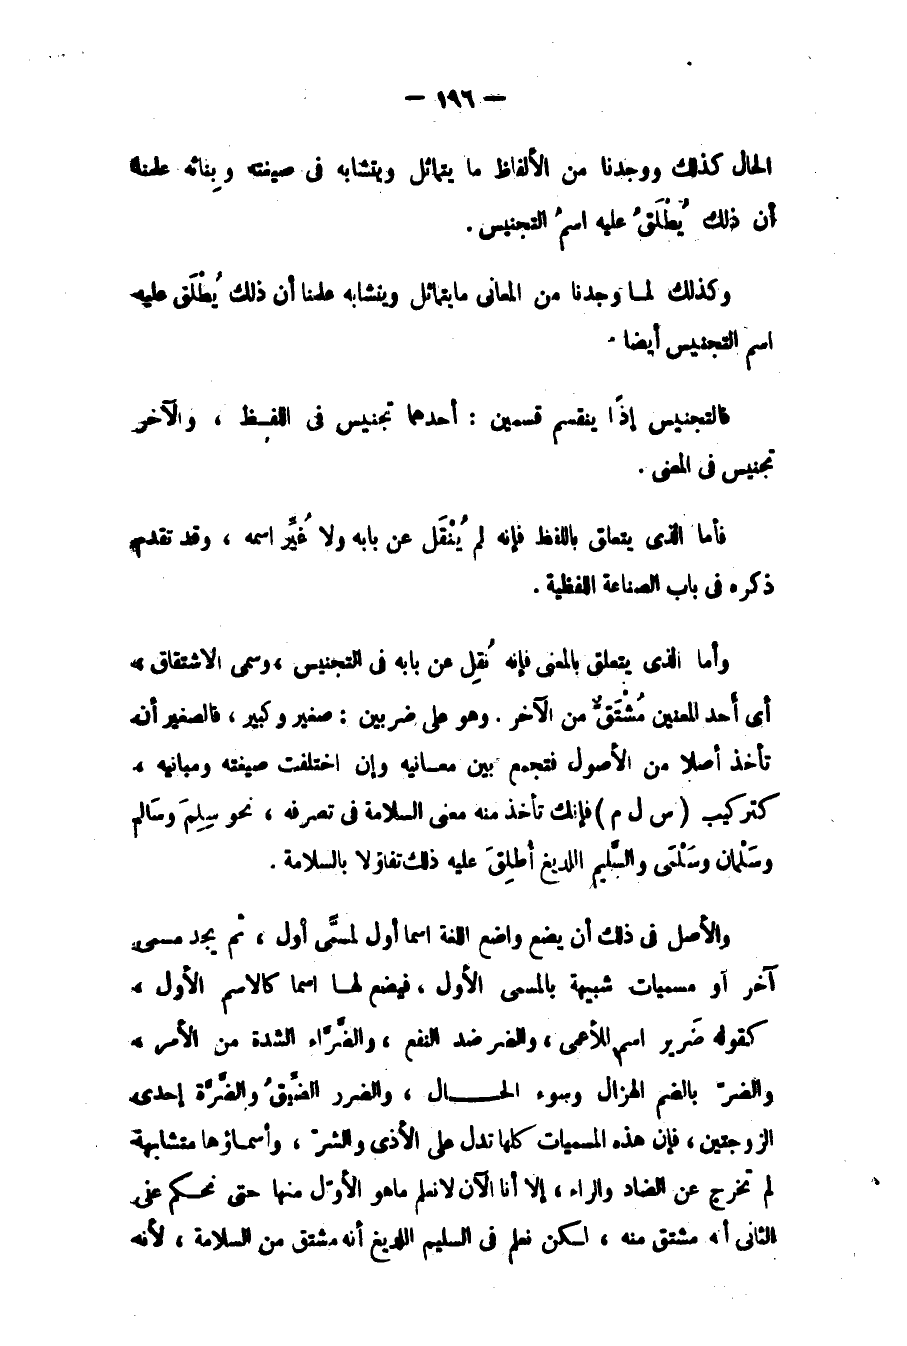 — ١٩٦ —
الحال كذلك ووجدنا من الألفاظ ما يتماثل ويتشابه فى صيغته وبنائه علمنا
أن ذلك يُطْلَقُ عليه اسمُ التجنيس .
وكذلك لمـا وجدنا من المعانى مايتماثل ويتشابه علمنا أن ذلك يُطْلَق عليه
اسم التجنيس أيضا .
فالتجنيس إذًا ينقسم قسمين : أحدهما تجنيس فى اللفـظ ، والآخر
تجنيس فى المعنى .
فأما الذى يتعلق باللفظ فإنه لم يُنْقَل عن بابه ولا غُيِّر اسمه ، وقد تقدم
ذكره فى باب الصناعة اللفظية .
وأما الذى يتعلق بالمعنى فإنه نُقِل عن بابه فى التجنيس ، وسمى الاشتقاق ،
أى أحد المعنيين مُشْتَقٌّ من الآخر . وهو على ضربين : صغير وكبير ، فالصغير أن
تأخذ أصلا من الأصول فتجمع بين معـانيه وإن اختلفت صيغته ومبانيه ،
كتركيب ( س ل م ) فإنك تأخذ منه معنى السلامة فى تصرفه ، نحو سلِمَ وسَالم
وسَلْمان وسَلْمَى والسَّلِيم اللديغ أُطلِقَ عليه ذلك تفاؤلا بالسلامة .
والأصل فى ذلك أن يضع واضع اللغة اسما أول لمسمًّى أول ، ثم يجد مسمى
آخر أو مسميات شبيهة بالمسمى الأول ، فيضع لهـا اسما كالاسم الأول ،
كقوله ضَرير اسم للأعمى ، والضر ضد النفع ، والضَّرَّاء الشدة من الأمر ،
والضرّ بالضم الهزال وسوء الحـــال ، والضرر الضَّيقُ والضَّرَّة إحدى
الزوجتين ، فإن هذه المسميات كلها تدل على الأذى والشرّ ، وأسمـاؤها متشابهة
لم تخرج عن الضاد والراء ، إلا أنا الآن لانعلم ماهو الأوّل منها حتى نحـكم على
الثانى أنه مشتق منه ، لـكن نعلم فى السليم اللديغ أنه مشتق من السلامة ، لأنه